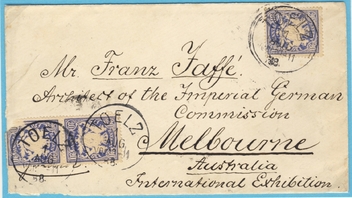 Mr. Franz Jaffé.
Architect of the Imperial German
Commission
Melbourne
Australia
International Exhibition.
TOELZ
TOELZ